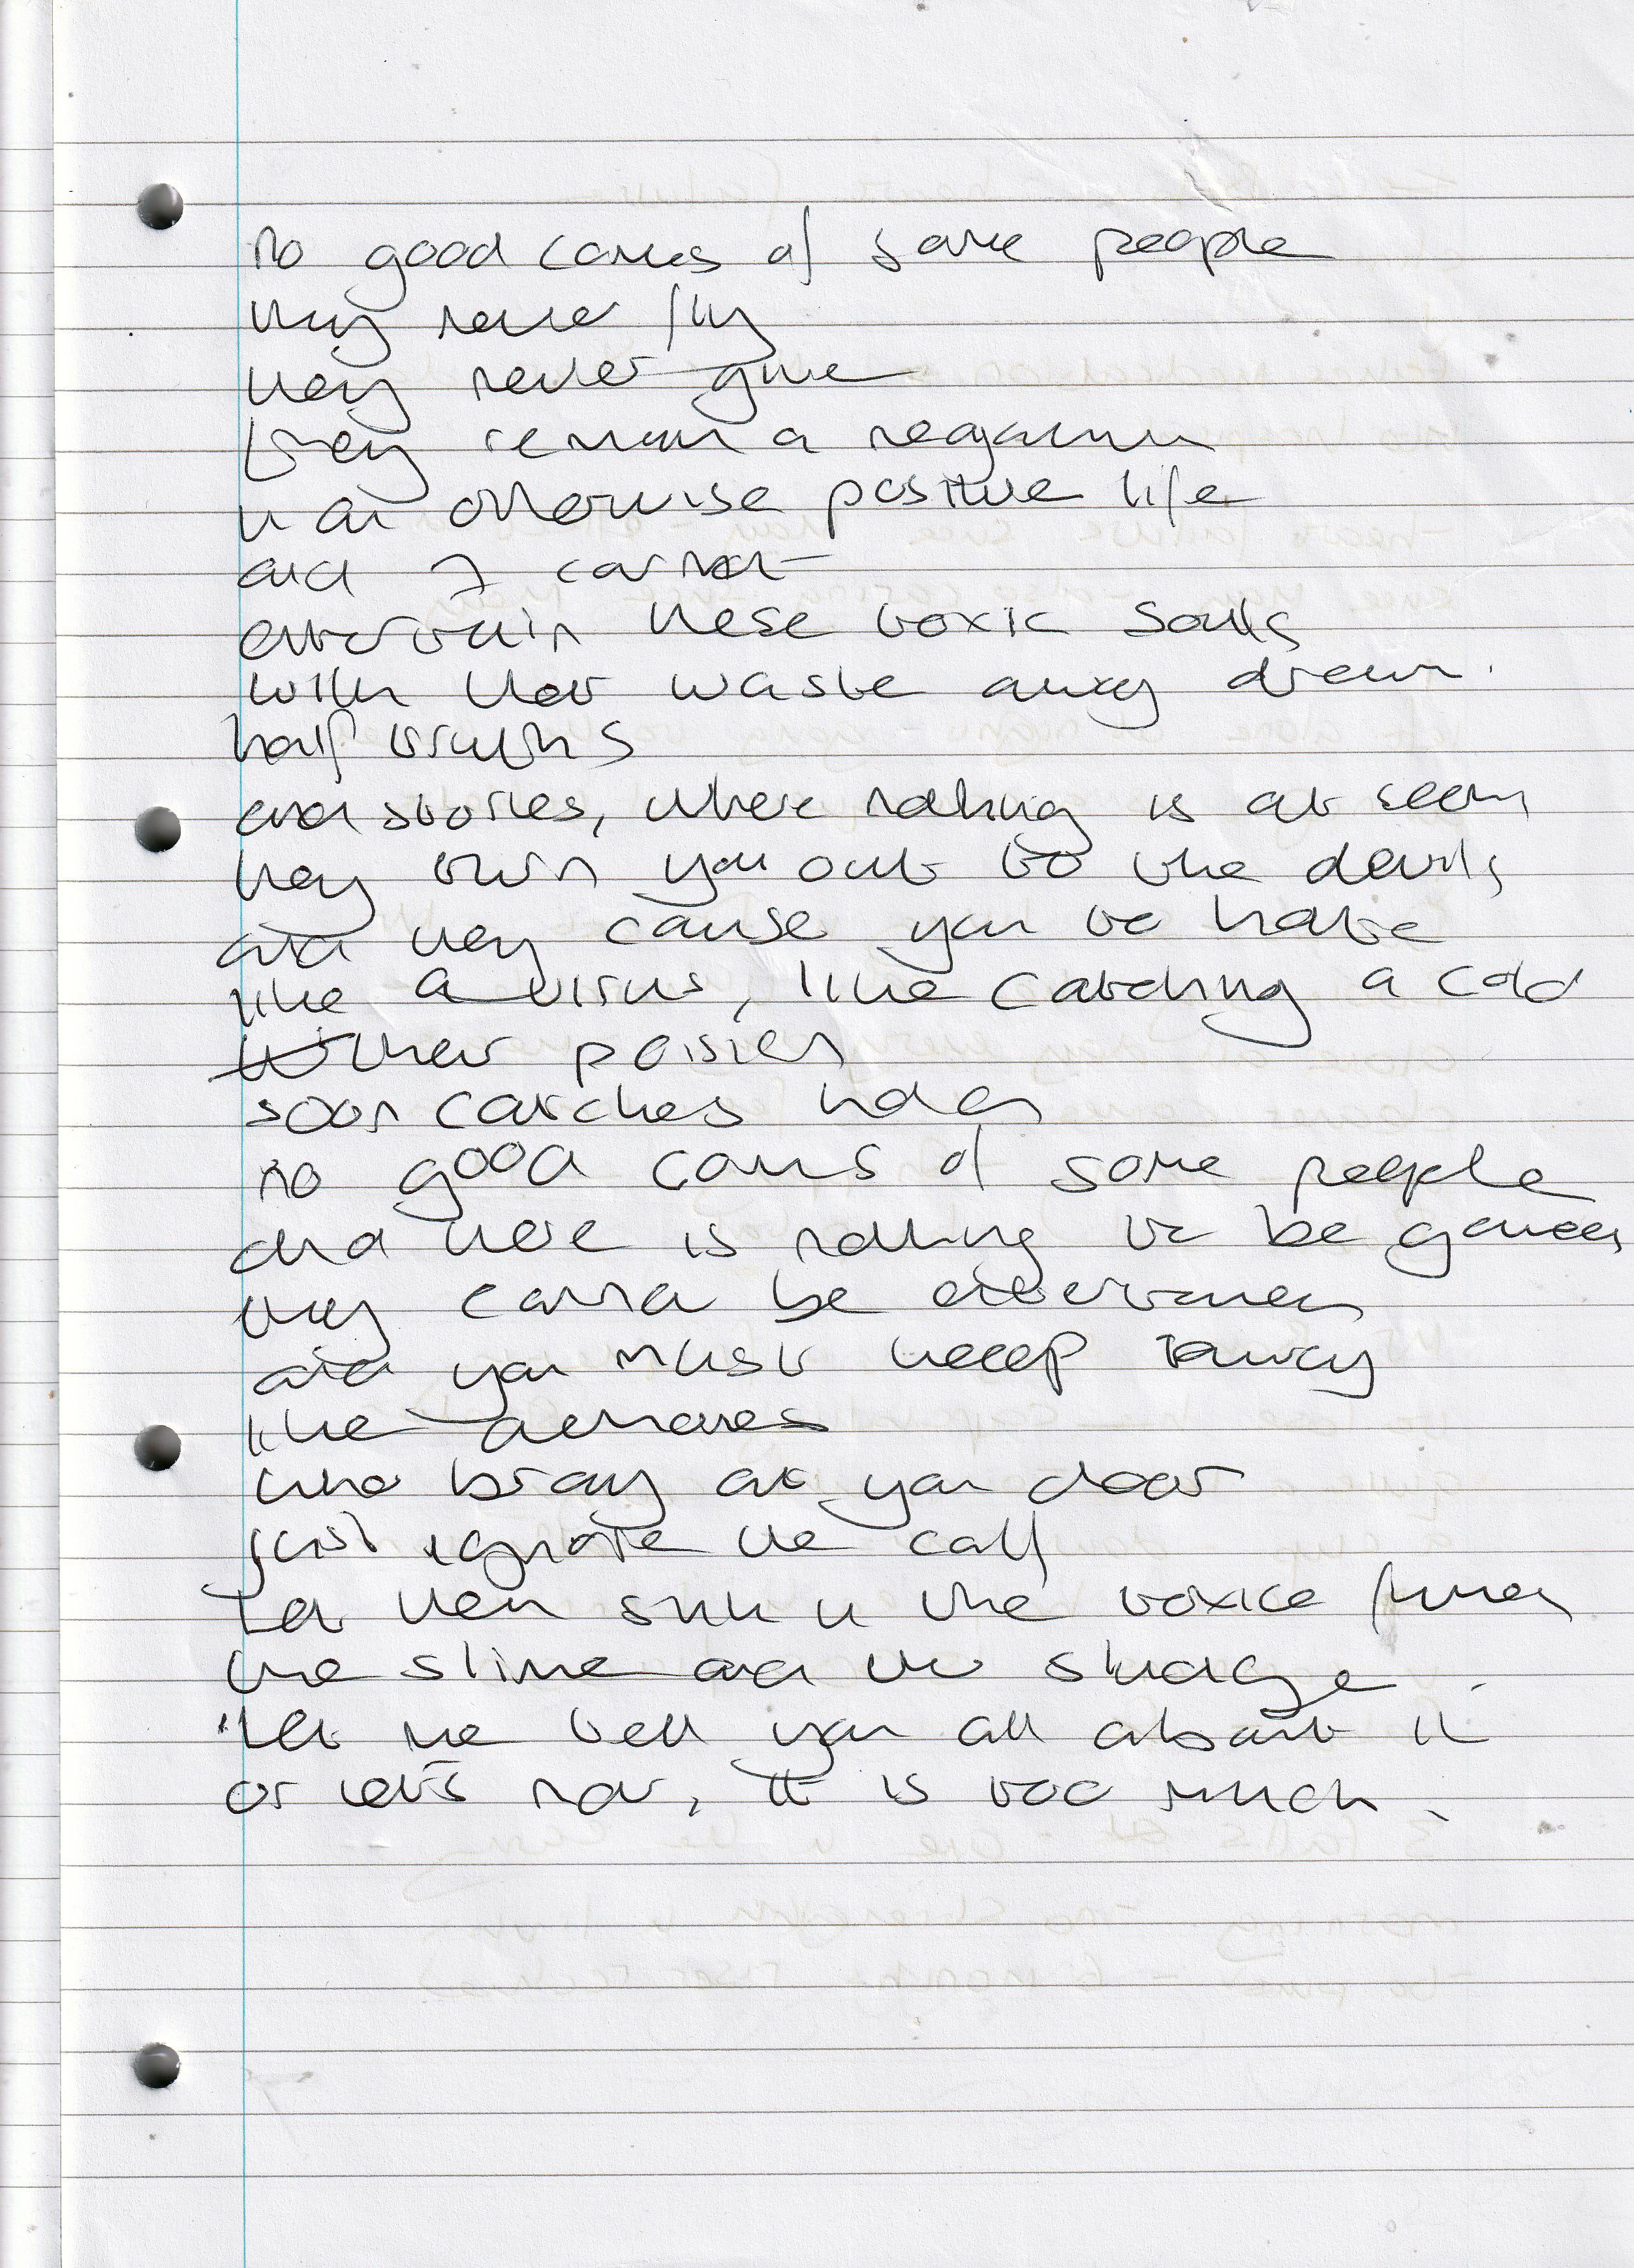 no good comes of some people
they never fly
they never give
they remain a negative
in an otherwise positive life
and I cannot
entertain these toxic souls
with their waste away dream.
half truths
and stories, where nothing is at seem
they turn you out to the devils
and they cause you to hate
like a virus, like catching a cold
their poison
soon catches hold
no good comes of some people
and there is nothing to be gained
they cannot be entertained
and you must keep away
like
who bray at you door
just ignore the call
Let them sink in the toxic fumes
the slime and the sludge.
let me tell you all about it
or let's not, It is too much.